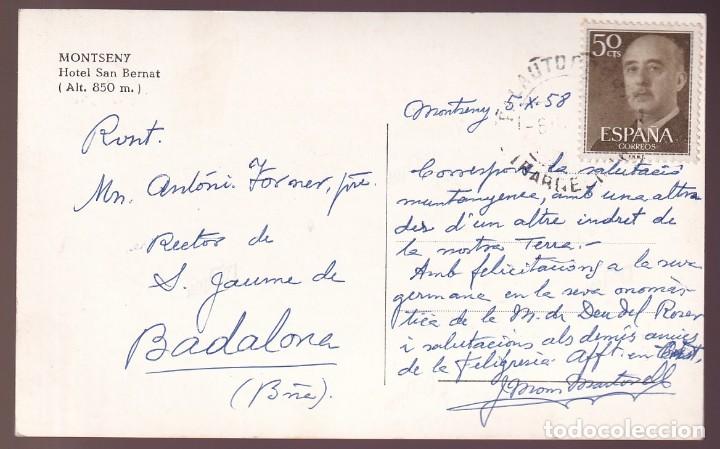 MONTSENY
Hotel San Bernat
(Alt. 850 m.)
Rvnt.
Mn. Antóni Forner, pre.
Rector de
S. Jaume de
Badalona
(Bna).
50
CTS
ESPAÑA
CORREOS
Montseny, 5.X.58
la salutació
muntanyenca, amb una altra
des d'un altre indret de
la nostra Terra.-
Amb felicitacions a la seva
germana en la seva onomàs-
tica de la M. de Deu del Roser
i salutacions als demés amics
de la feligresia. Afft. en
todocoleccion.net